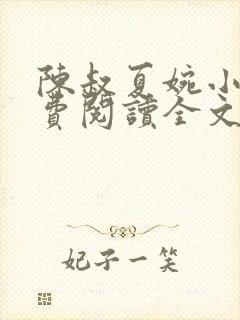 陳叔夏婉小
費閱讀全文
妃子一笑